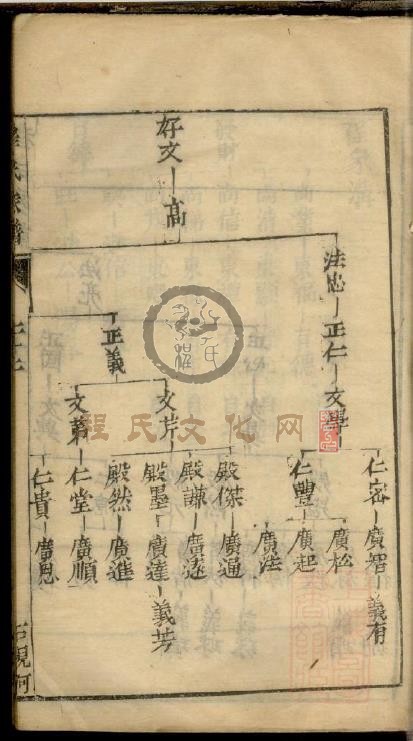 好文 高
法忠 正仁 文學
正義
文芹
文第
仁密 廣智 義有
仁豐
廣松
廣起
廣法
殿傑 廣通
殿謙 廣逐
殿墨 廣達 義芳
殿然 廣進
仁堂 廣順
仁貴 廣恩
程氏文化网
氏族譜
石現河